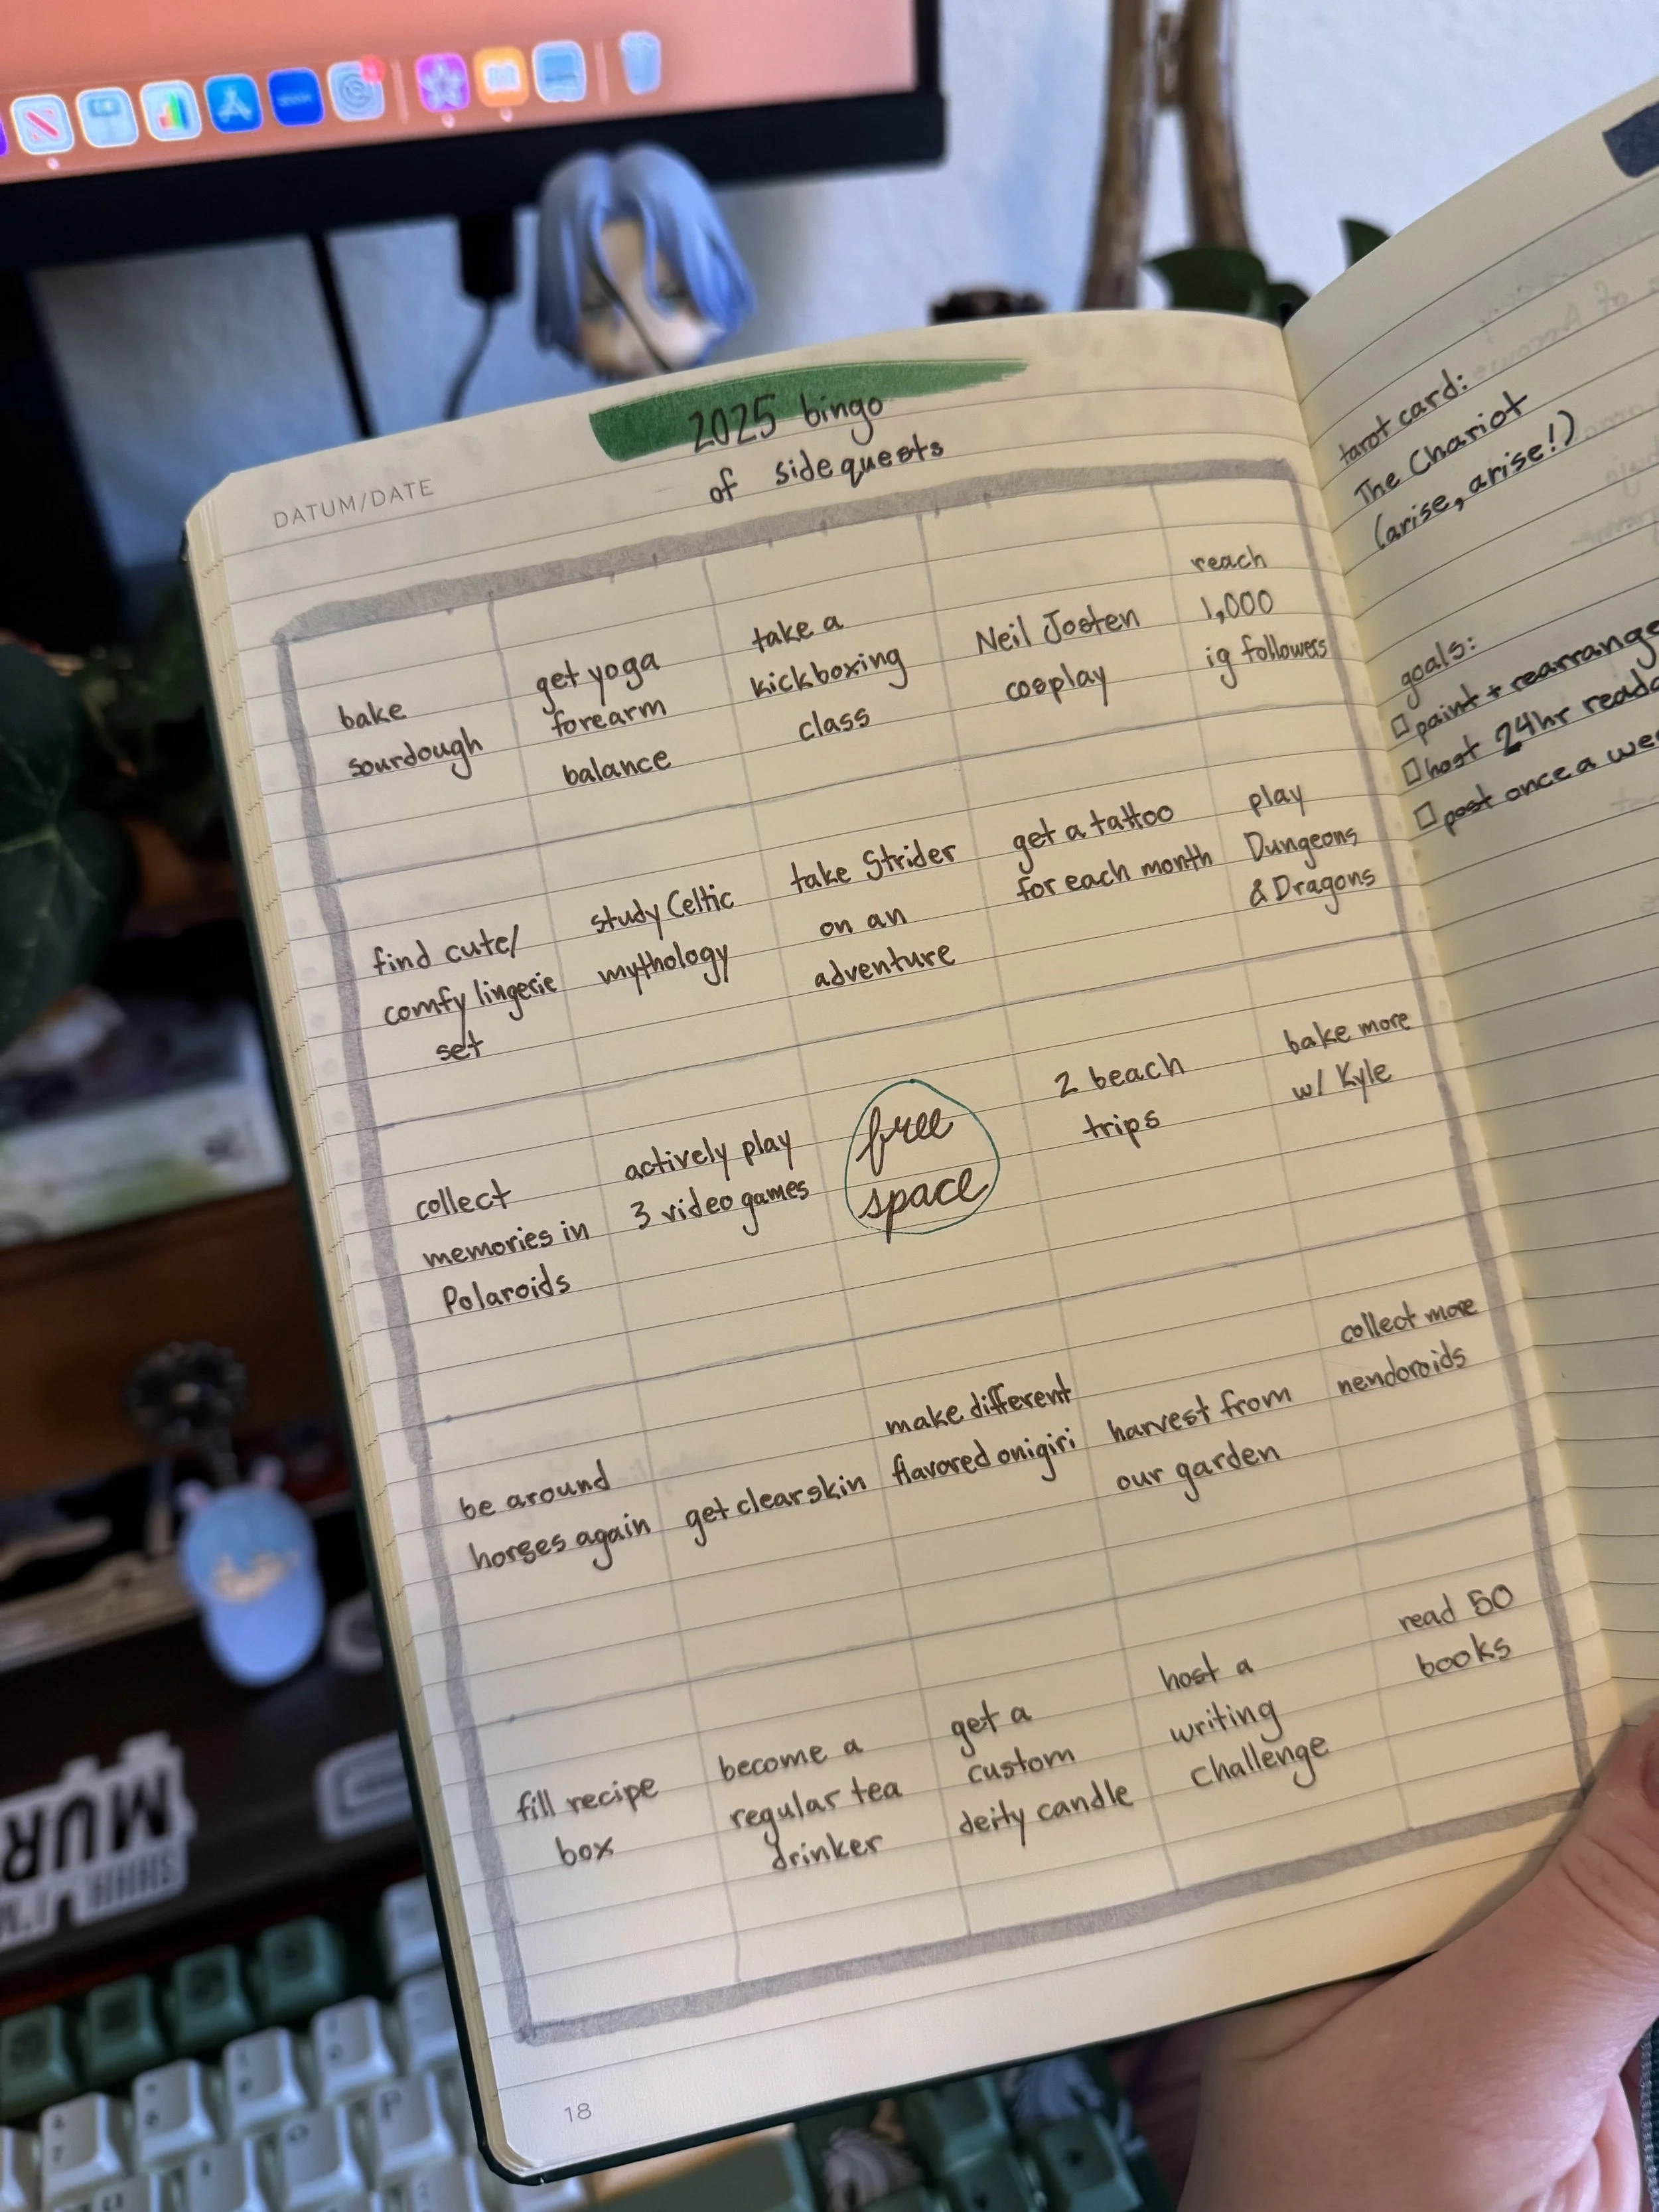 2025 bingo
of sidequests
DATUM/DATE
bake
sourdough
get yoga
forearm
balance
take a
kickboxing
class
Neil Josten
cosplay
reach
1,000
ig followers
find cute/
comfy lingerie
set
study Celtic
mythology
take Strider
on an
adventure
get a tattoo
for each month
play
Dungeons
& Dragons
collect
memories in
Polaroids
actively play
3 video games
free
space
2 beach
trips
bake more
w/ Kyle
be around
horses again
get clear skin
make different
flavored onigiri
harvest from
our garden
collect more
nendoroids
fill recipe
box
become a
regular tea
drinker
get a
custom
deity candle
host a
writing
challenge
read 50
books
18
tarot card:
The Chariot
(arise, arise!)
goals:
paint + rearrange
host 24hr
post once a
MUR
SHHH I'M